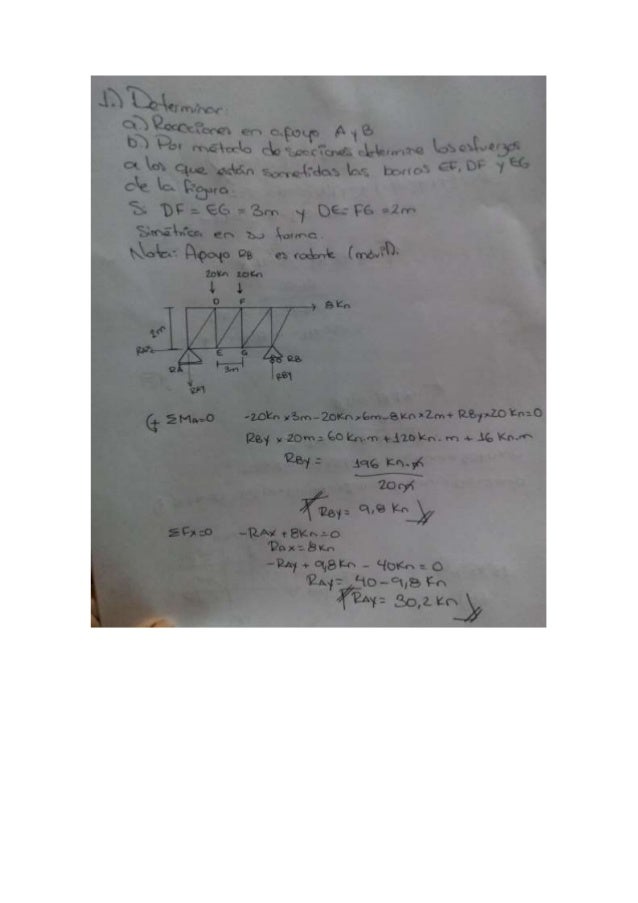 1.) Determinar:
a) Reacciones en apoyo A y B
b) Por método de secciones determine los esfuerzos
a los que están sometidas las barras EF, DF y EG
de la figura.
Si DF = EG = 3m y DE = FG = 2m
Simétrica en su forma.
Nota: Apoyo RB es rodante (movil).
20Kn 20Kn
D F
8Kn
2m
RAX
RA E G RB
3m
RAY RBY
(+ ΣMA=0 -20Kn x 3m - 20Kn x 6m - 8Kn x 2m + RBy x 20 Kn = 0
RBy x 20m = 60 Kn.m + 120 Kn.m + 16 Kn.m
RBy = 196 Kn.m
20m
RBy = 9,8 Kn
ΣFx=0 -RAx + 8Kn = 0
RAx = 8Kn
-RAy + 9,8Kn - 40Kn = 0
RAy = 40 - 9,8 Kn
RAy = 30,2 Kn